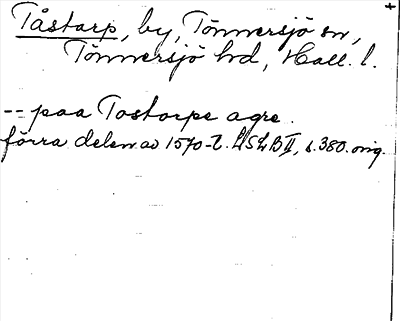 Tåstarp, by, Tönnersjö sn,
Tönnersjö hd, Hall. l.
-- paa Tostorpe agre.
förra delen av 1570-t. LSLB II, s. 380. orig.